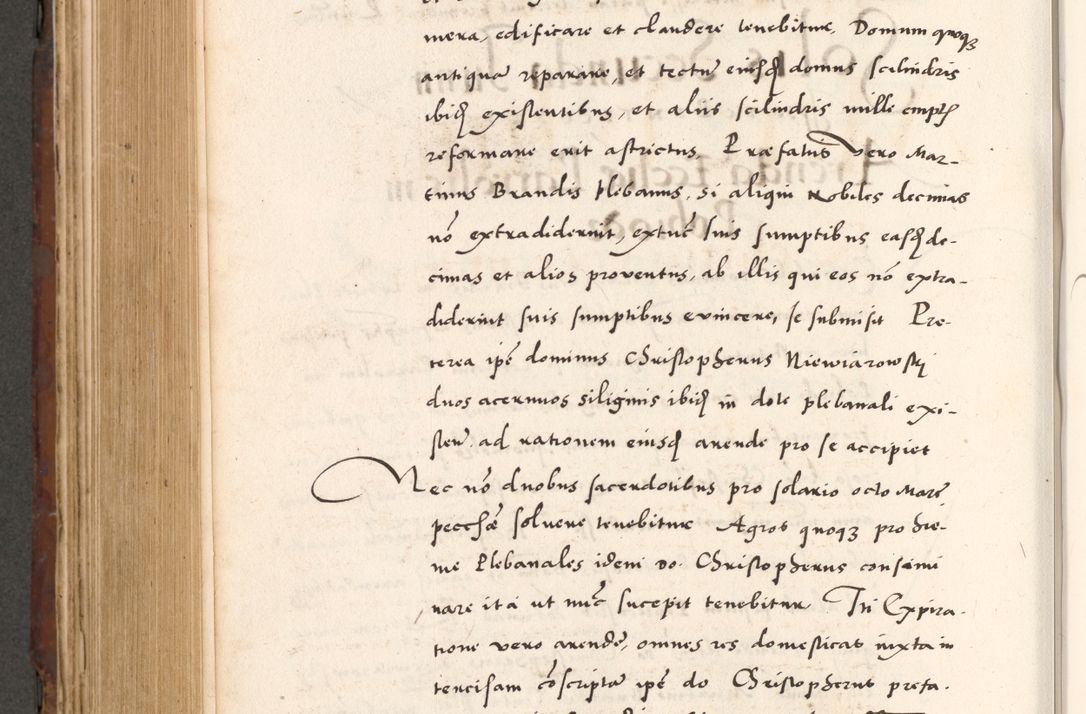 mera, edificare et claudere tenebitur, Domum quoqȝ
antiquā reparare, et tectū eiusdē domus scilindris
ibidē existentibus, et aliis scilindris mille emptis
reformare erit astrictus, Præfatus vero Mar-
tinus Brandis plebanus, si aliqui Nobiles decimas
nō extradiderint, extūc suis sumptibus easdē de-
cimas et alios proventus, ab illis qui eos nō extra-
diderint suis sumptibus evincere, se submisit Pre-
terea ipē dominus Christopherus Niewiarowski
duos acervos siliginis ibidē in dote plebanali exi-
sten̄ ad rationem eiusdē arende pro se accipiet
Nec nō duobus sacerdotibus pro solario octo Marē
pecchæ solvere tenebitur Agros quoqȝ pro hie-
me Plebanales idem Do. Christopherus consemi
nare ita ut nūc sucepit tenebitur Iti Expira-
tione vero arendē, omnes res domesticas iuxta in
tercisam cōscriptā ipē do Christopherus prefa-